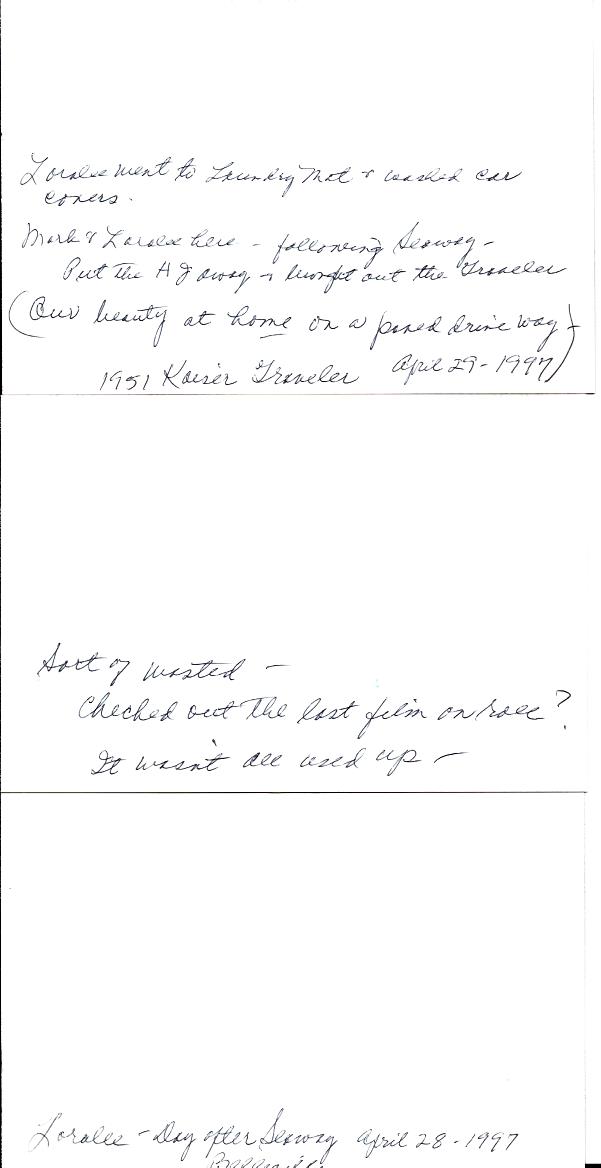 Loralee went to Laundry Mat & washed car
covers.
Mark & Loralee here - following Seaway -
Put the H J away & brought out the Traveler
(Our beauty at home on a paved drive way -)
1951 Kaiser Traveler April 29 - 1997
Sort of wasted -
Checked out the last film on roll?
It wasn't all used up -
Loralee - Day after Seaway April 28 - 1997